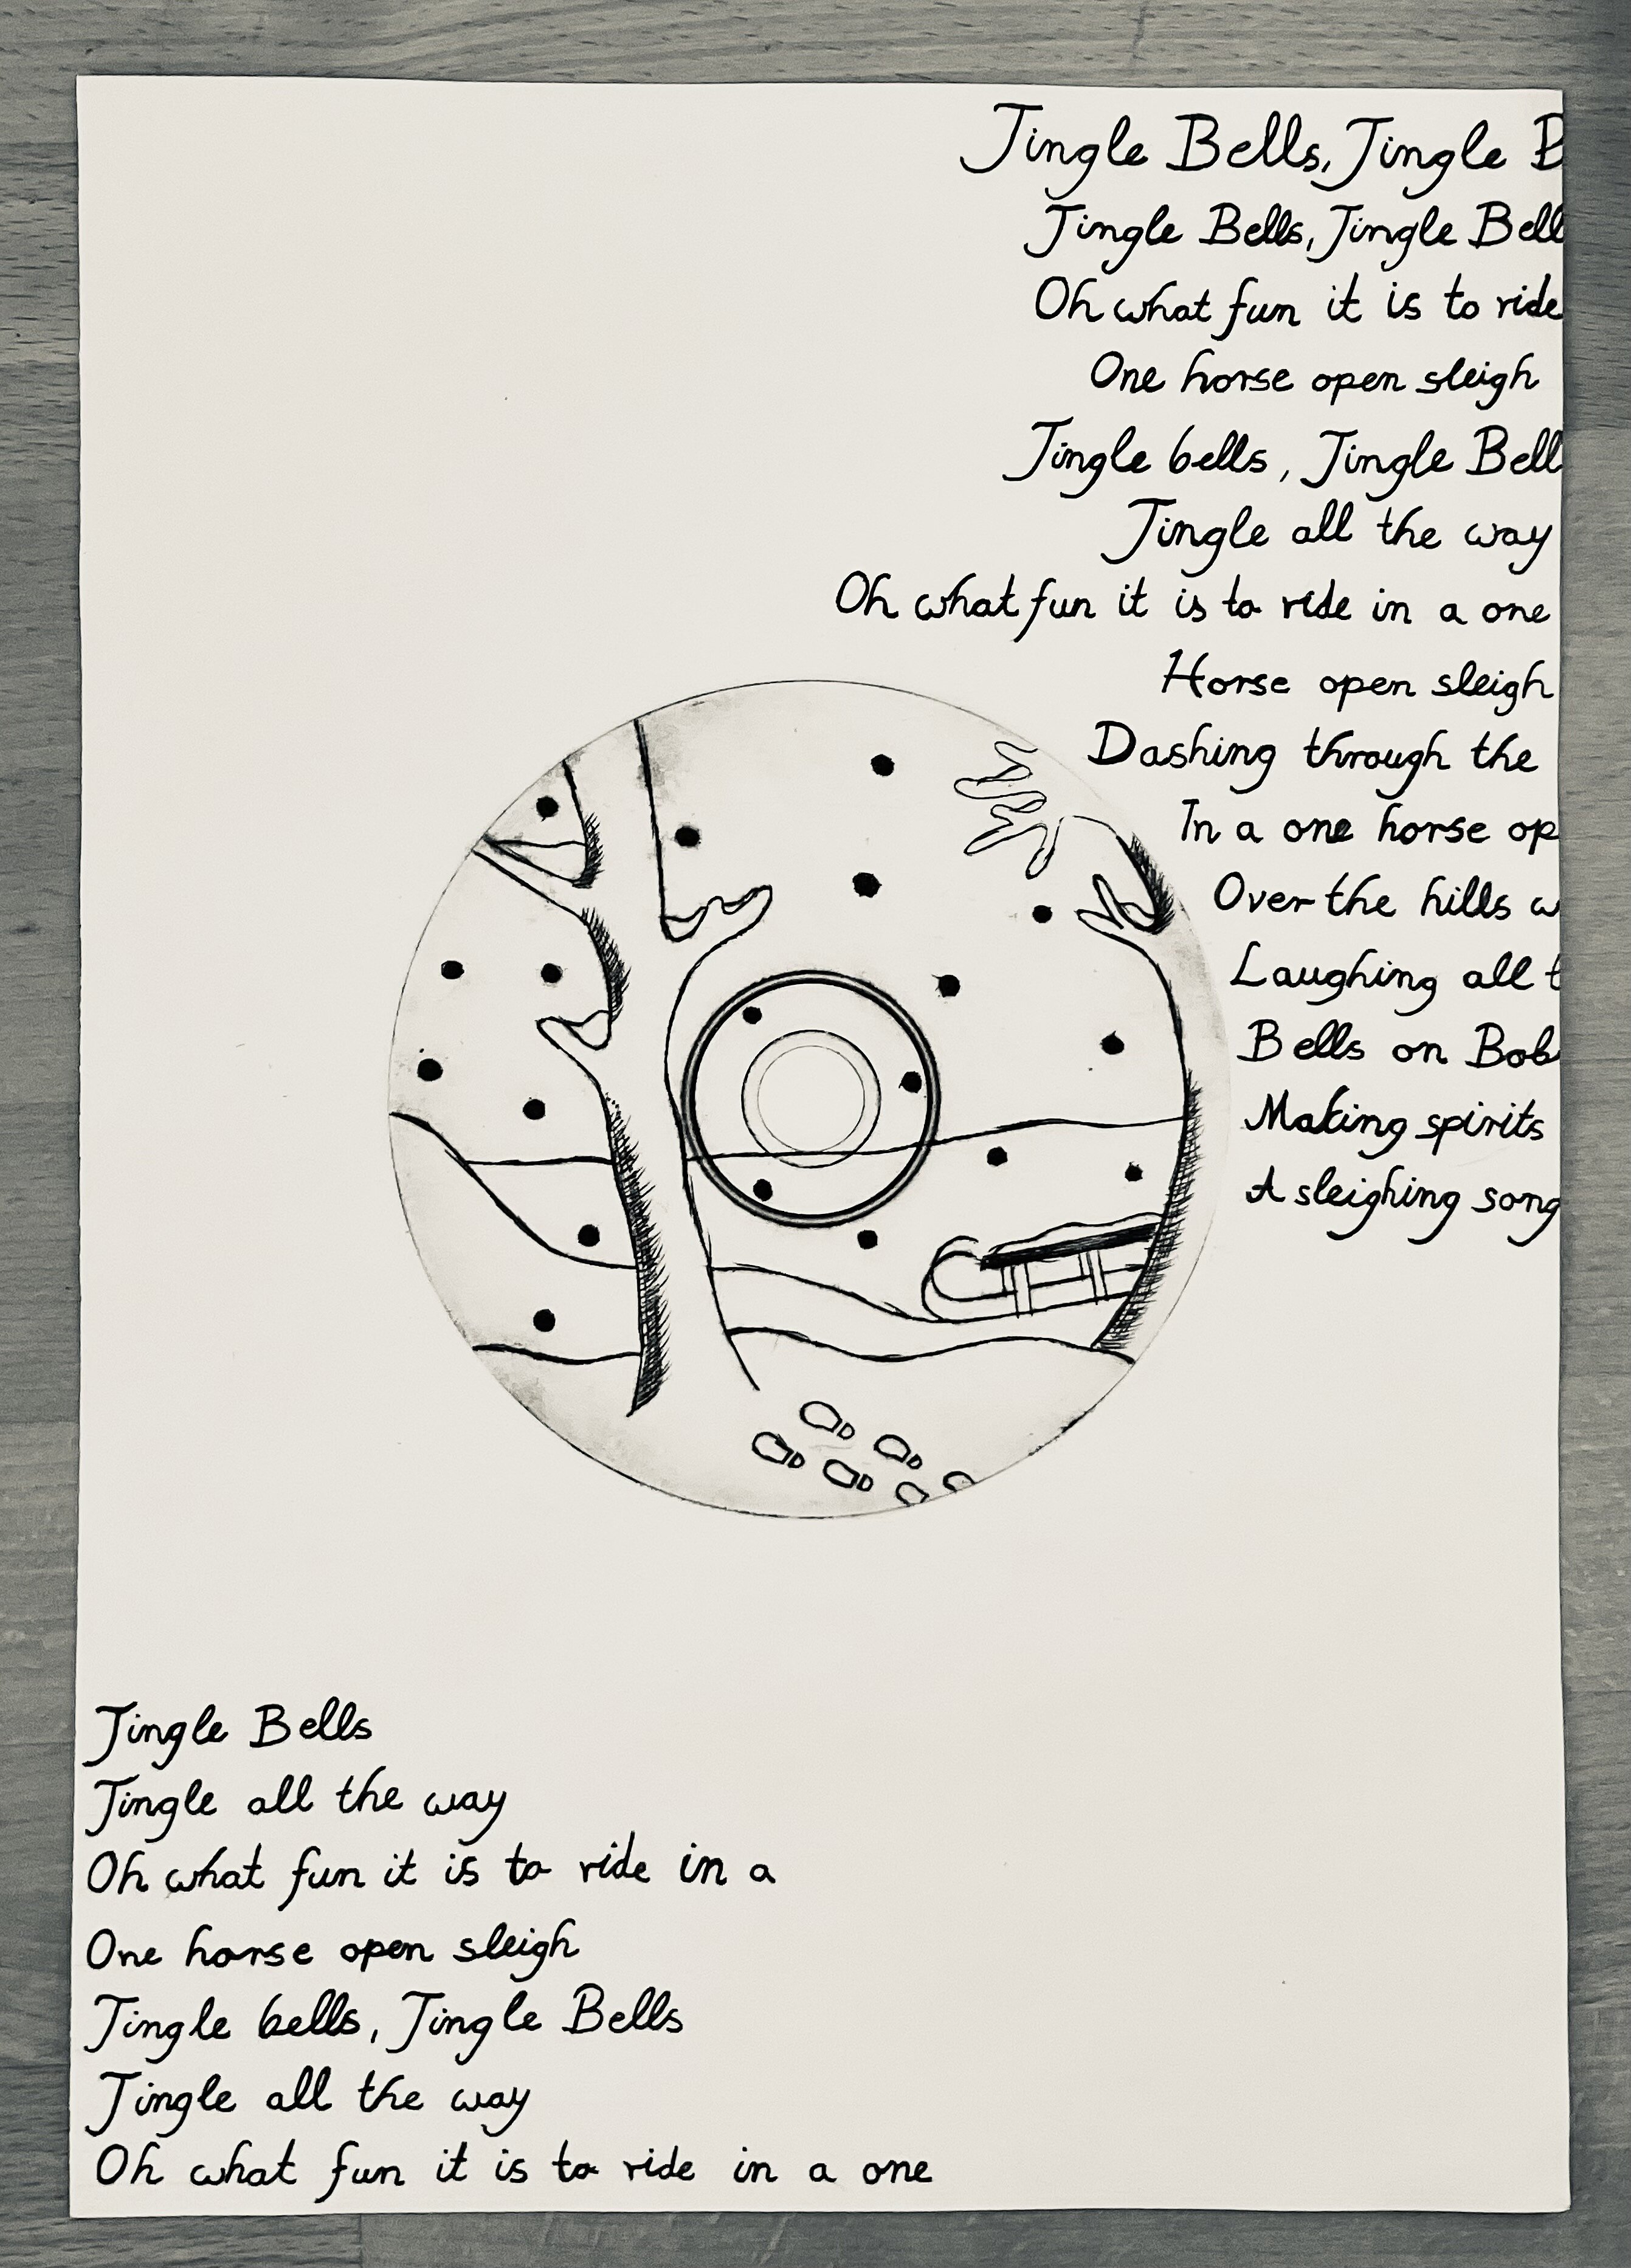 Jingle Bells, Jingle B
Jingle Bells, Jingle Bell
Oh what fun it is to ride
One horse open sleigh
Jingle bells, Jingle Bell
Jingle all the way
Oh what fun it is to ride in a one
Horse open sleigh
Dashing through the
In a one horse op
Over the hills w
Laughing all t
Bells on Bob
Making spirits
A sleighing song
Jingle Bells
Jingle all the way
Oh what fun it is to ride in a
One horse open sleigh
Jingle bells, Jingle Bells
Jingle all the way
Oh what fun it is to ride in a one